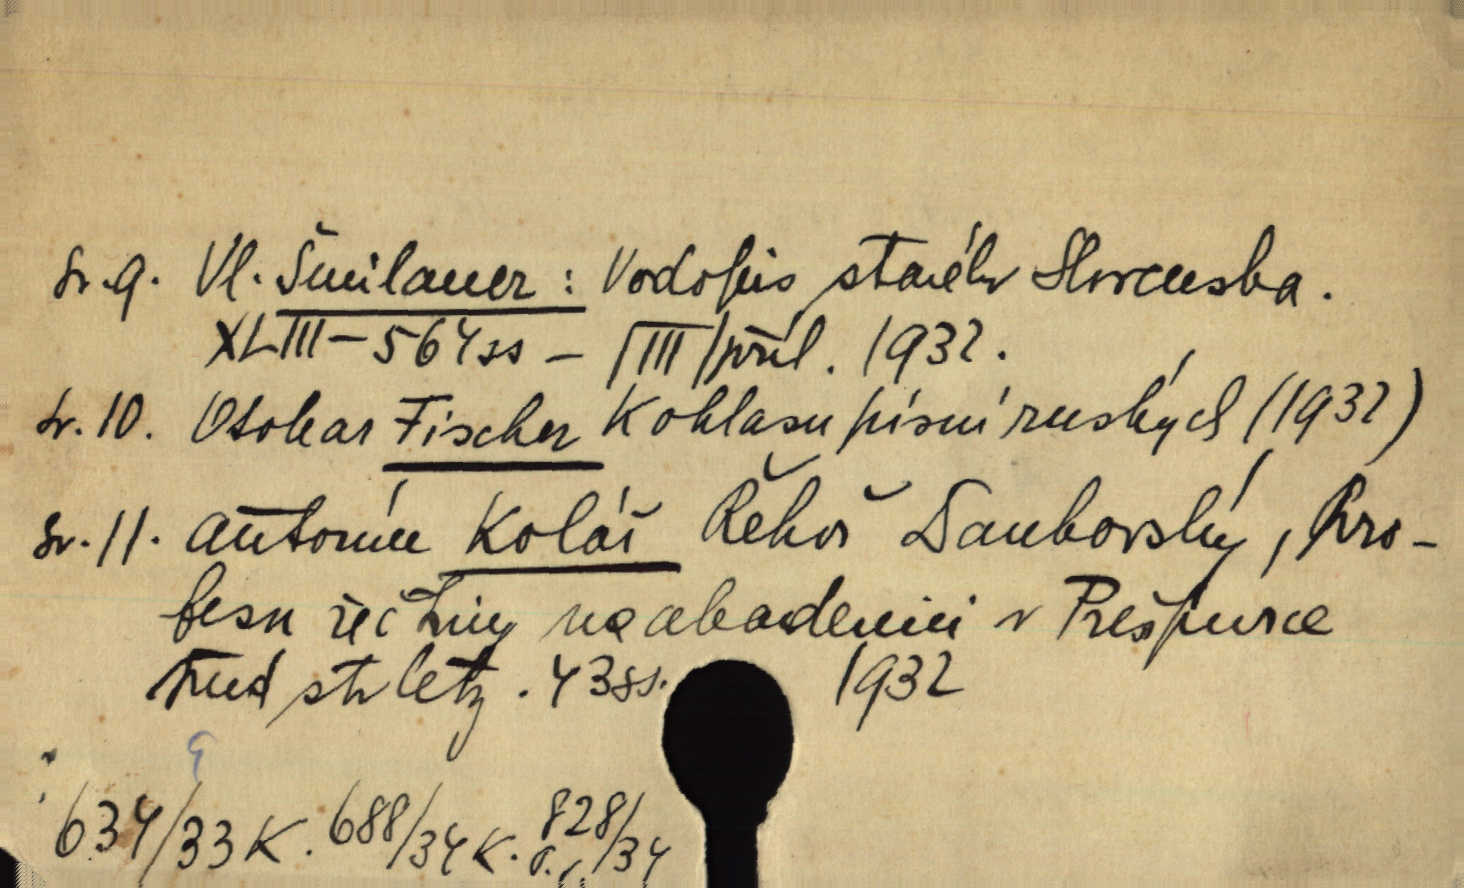 Sv. 9. Vl. Šmilauer: Vodopis starého Slovenska.
XLIII – 564 ss – [III] příl. 1932.
Sv. 10. Otokar Fischer K ohlasu písní ruských (1932)
Sv. 11. Antonín Kolář Řehoř Dankovský, Pro-
fesor řečtiny na akademii v Prešpurce
před sto lety. 43 ss. 1932
634/33 K. 688/34 K. 828/34